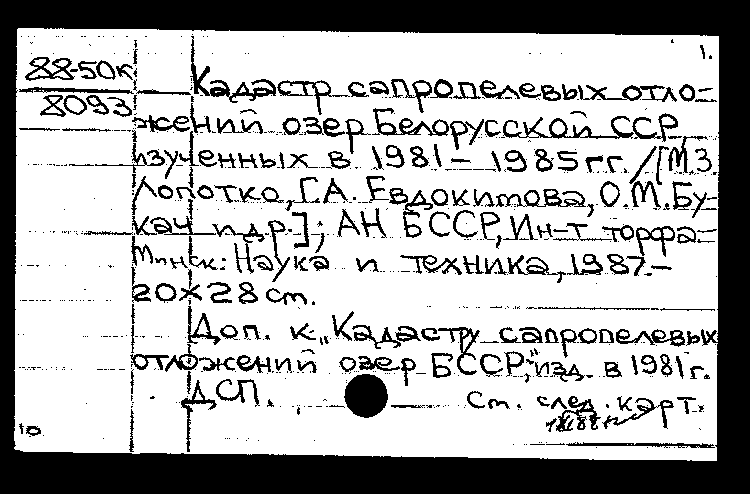 1.
88-50к
8093
Кадастр сапропелевых отло-
жений озер Белорусской ССР,
изученных в 1981 - 1985 гг. /[М.З.
Лопотко, Г.А. Евдокимова, О.М. Бу-
кач и др.]; АН БССР, Ин-т торфа. -
Минск: Наука и техника, 1987. -
20×28 cm.
Доп. к „Кадастру сапропелевых
отложений озер БССР," изд. в 1981 г.
ДСП.
Ст. след. карт.
10